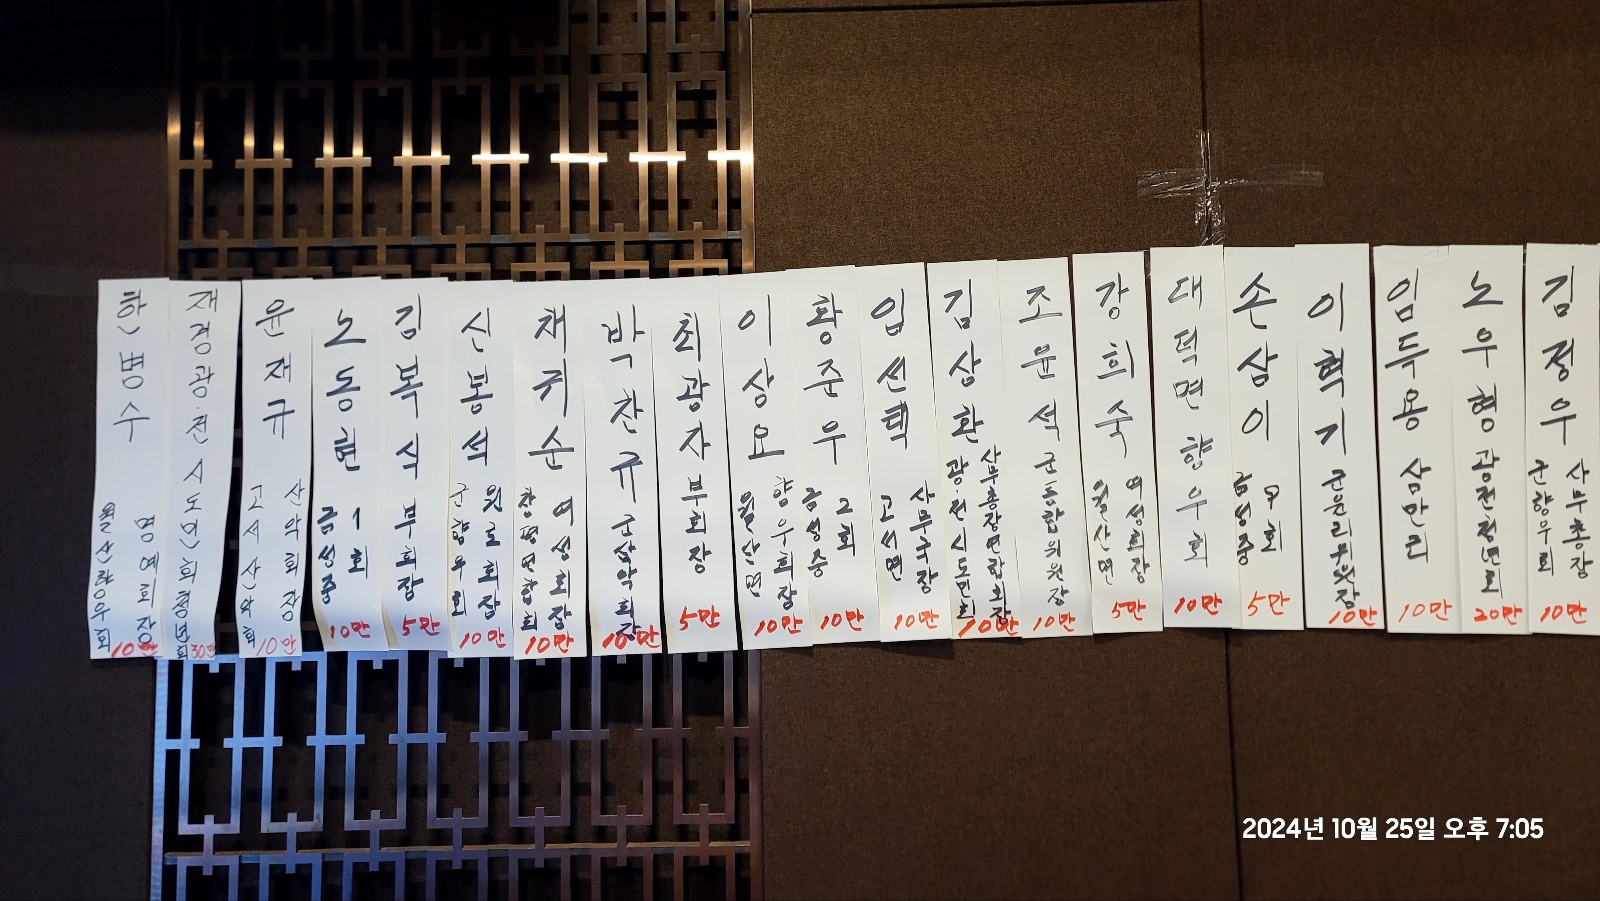 하병수 월산향우회 명예회장 10만
재경광·전시도민회청년회 30만
윤재규 고서산악회 산악회장 10만
노동현 금성중 1회 10만
김복식 부회장 5만
신봉석 군향우회 원로회장 10만
채귀순 창평면연합회 여성회장 10만
박찬규 군산악회장 10만
최광자 부회장 5만
이상요 월산면 향우회장 10만
황준우 금성중 2회 10만
임선택 고서면 사무국장 10만
김삼환 광·전시도민회 사무총장연합회장 10만
조윤석 군통합위원장 10만
강희숙 월산면 여성회장 5만
대덕면향우회 10만
손삼이 금성중 9회 5만
이혁기 군윤리위원장 10만
임두용 삼만리 10만
노우형 광전청년회 20만
김정우 군향우회 사무총장 10만
2024년 10월 25일 오후 7:05